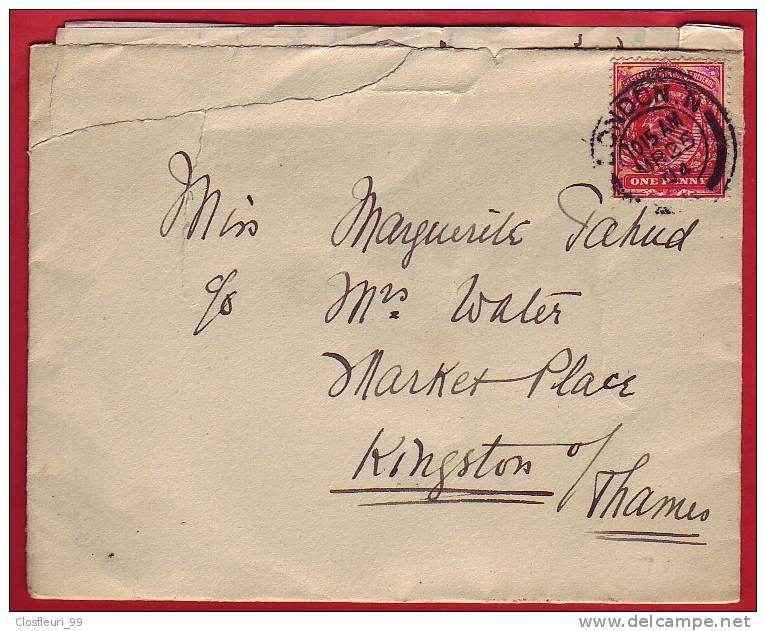 POSTAGE & REVENUE
LONDON. N
10 15 AM
MR 25
04
ONE PENNY
Miss Marguerite Tahud
c/o Mrs Water
Market Place
Kingston o/
Thames
Closfleuri_99
delcampe.net